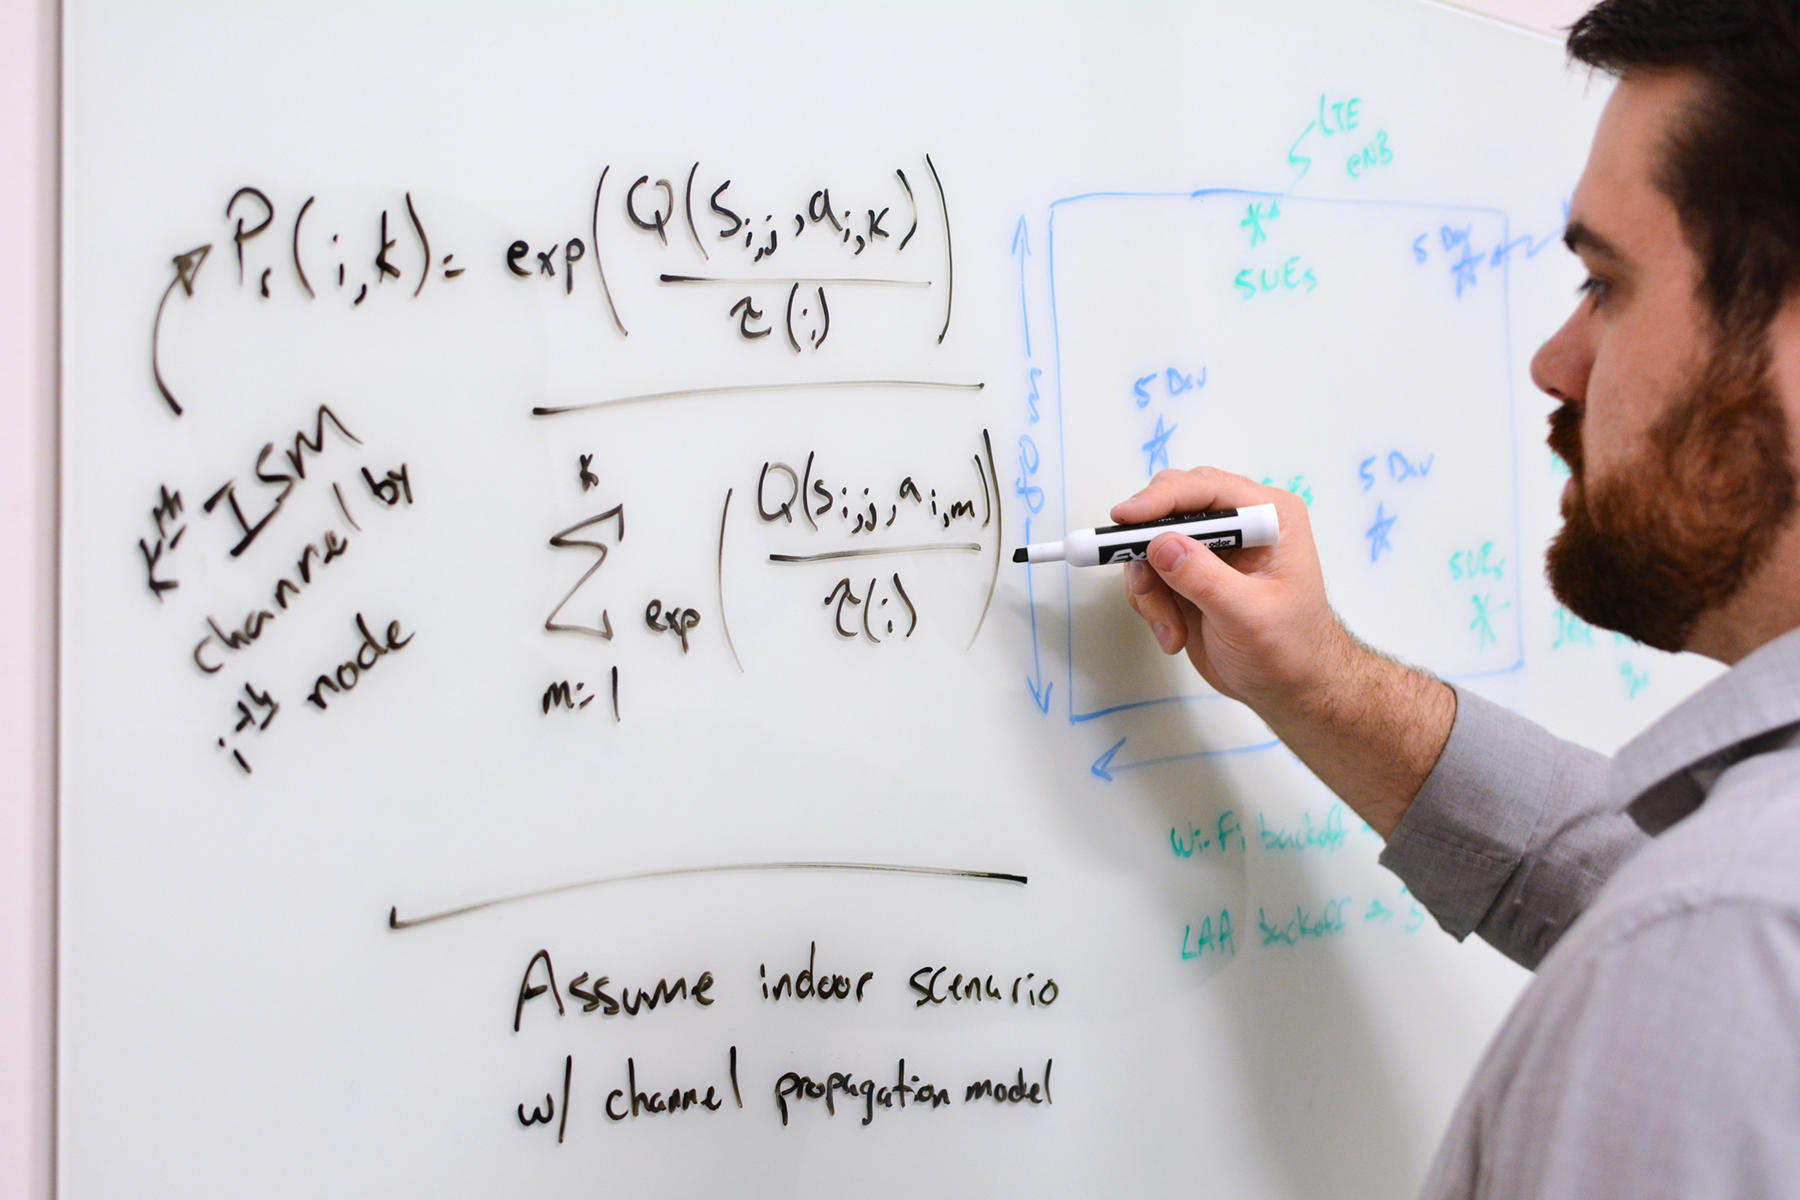 Pr(i,k) = exp(Q(s_{i,j}, a_{i,k}) / τ(i))
K
Σ exp(Q(s_{i,j}, a_{i,m}) / τ(i))
m=1
kth ISM
channel by
ith node
Assume indoor scenario
w/ channel propagation model
LTE
eNB
5UEs
5 Dev
5 Dev
5 Dev
5UEs
80m
Wi-Fi backoff
LAA backoff →